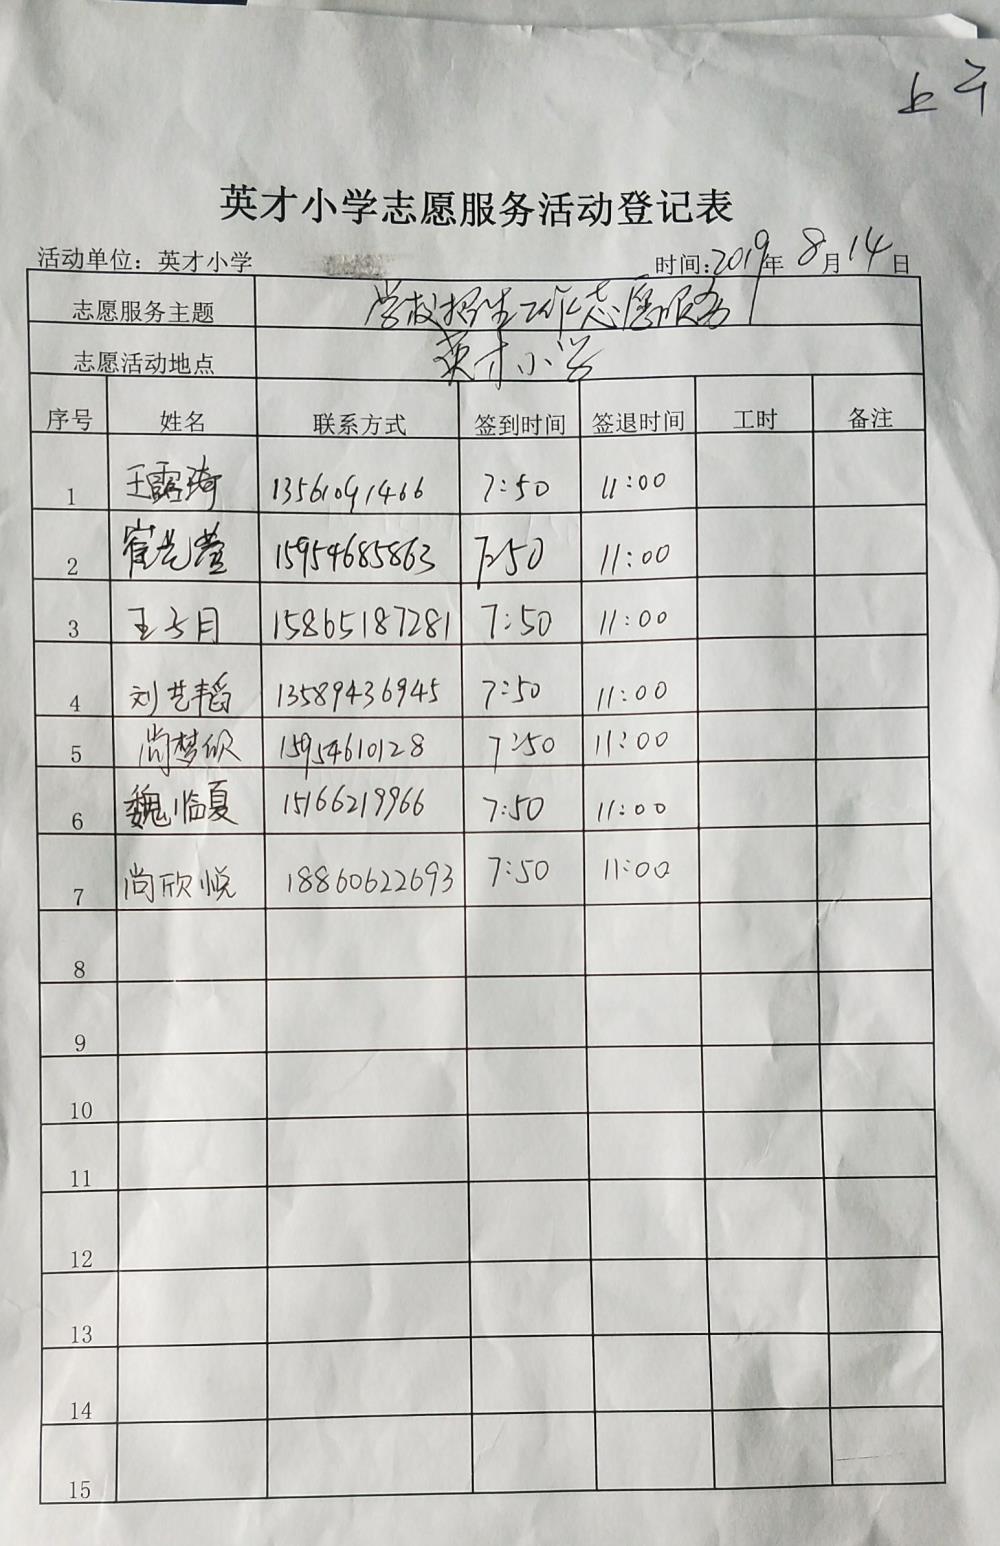 上午
英才小学志愿服务活动登记表
活动单位：英才小学 时间：2019年 8月14日
志愿服务主题 学校招生工作志愿服务
志愿活动地点 英才小学
序号 姓名 联系方式 签到时间 签退时间 工时 备注
1 王露琦 13561091466 7:50 11:00
2 崔艺萱 15954685863 7:50 11:00
3 王子月 15865187281 7:50 11:00
4 刘艺韬 13589436945 7:50 11:00
5 尚梦欣 15954610128 7:50 11:00
6 魏临夏 15166219966 7:50 11:00
7 尚欣悦 18860622693 7:50 11:00
8
9
10
11
12
13
14
15